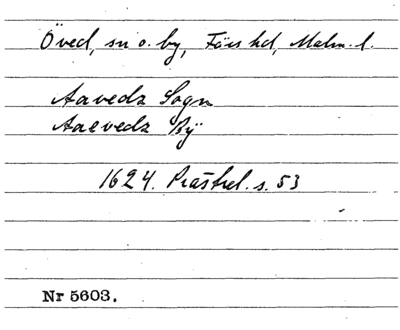 Öved, sn o. by, Färs hd, Malm. l.
Aavedz Sogn
Aaevedz Bÿ
1624. Prästrel. s. 53
Nr 5603.